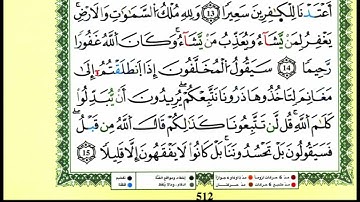 أَعْتَدْنَا لِلْكَٰفِرِينَ سَعِيرًا ١٣ وَلِلَّهِ مُلْكُ ٱلسَّمَٰوَٰتِ وَٱلْأَرْضِ ۚ
يَغْفِرُ لِمَن يَشَآءُ وَيُعَذِّبُ مَن يَشَآءُ ۚ وَكَانَ ٱللَّهُ غَفُورًا
رَّحِيمًا ١٤ سَيَقُولُ ٱلْمُخَلَّفُونَ إِذَا ٱنطَلَقْتُمْ إِلَىٰ
مَغَانِمَ لِتَأْخُذُوهَا ذَرُونَا نَتَّبِعْكُمْ ۖ يُرِيدُونَ أَن يُبَدِّلُوا۟
كَلَٰمَ ٱللَّهِ ۚ قُل لَّن تَتَّبِعُونَا كَذَٰلِكُمْ قَالَ ٱللَّهُ مِن قَبْلُ ۖ
فَسَيَقُولُونَ بَلْ تَحْسُدُونَنَا ۚ بَلْ كَانُوا۟ لَا يَفْقَهُونَ إِلَّا قَلِيلًا ١٥
512